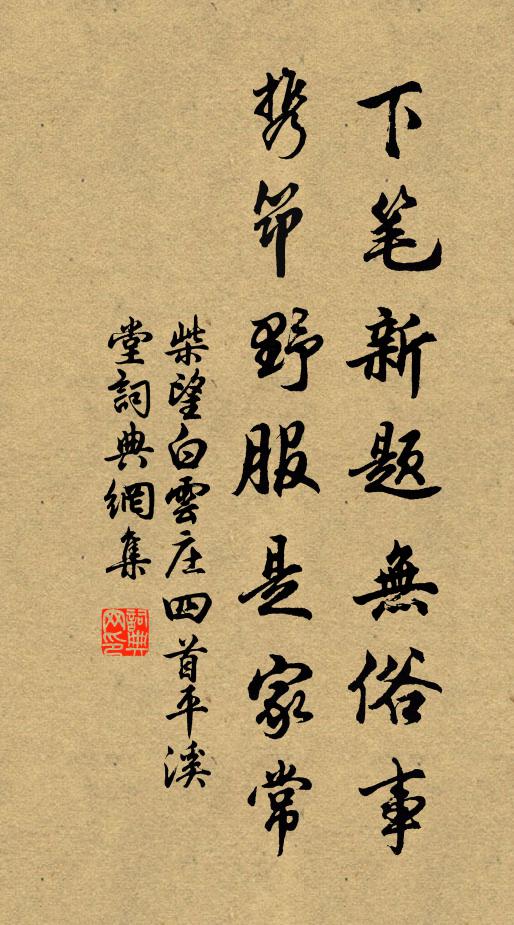 下笔新题無俗事
携筇野服是家常
柴望白雲庄四首平溪
堂詞典網集
詞典网印